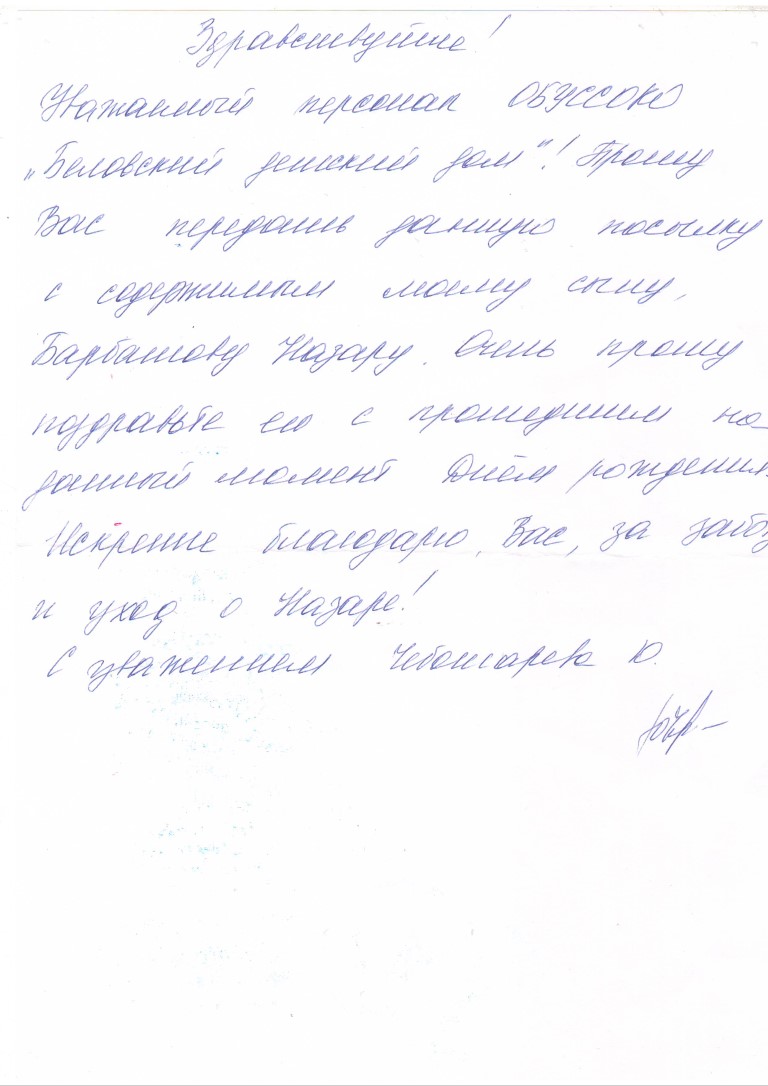 Здравствуйте!
Уважаемый персонал ОБУССОКО
„Беловский детский дом"! Прошу
Вас передать данную посылку
с содержимым моему сыну,
Барбашову Назару. Очень прошу
поздравьте его с прошедшим на
данный момент Днём рождения.
Искренне благодарю, Вас, за забо
и уход о Назаре!
С уважением Чебонарева Ю.